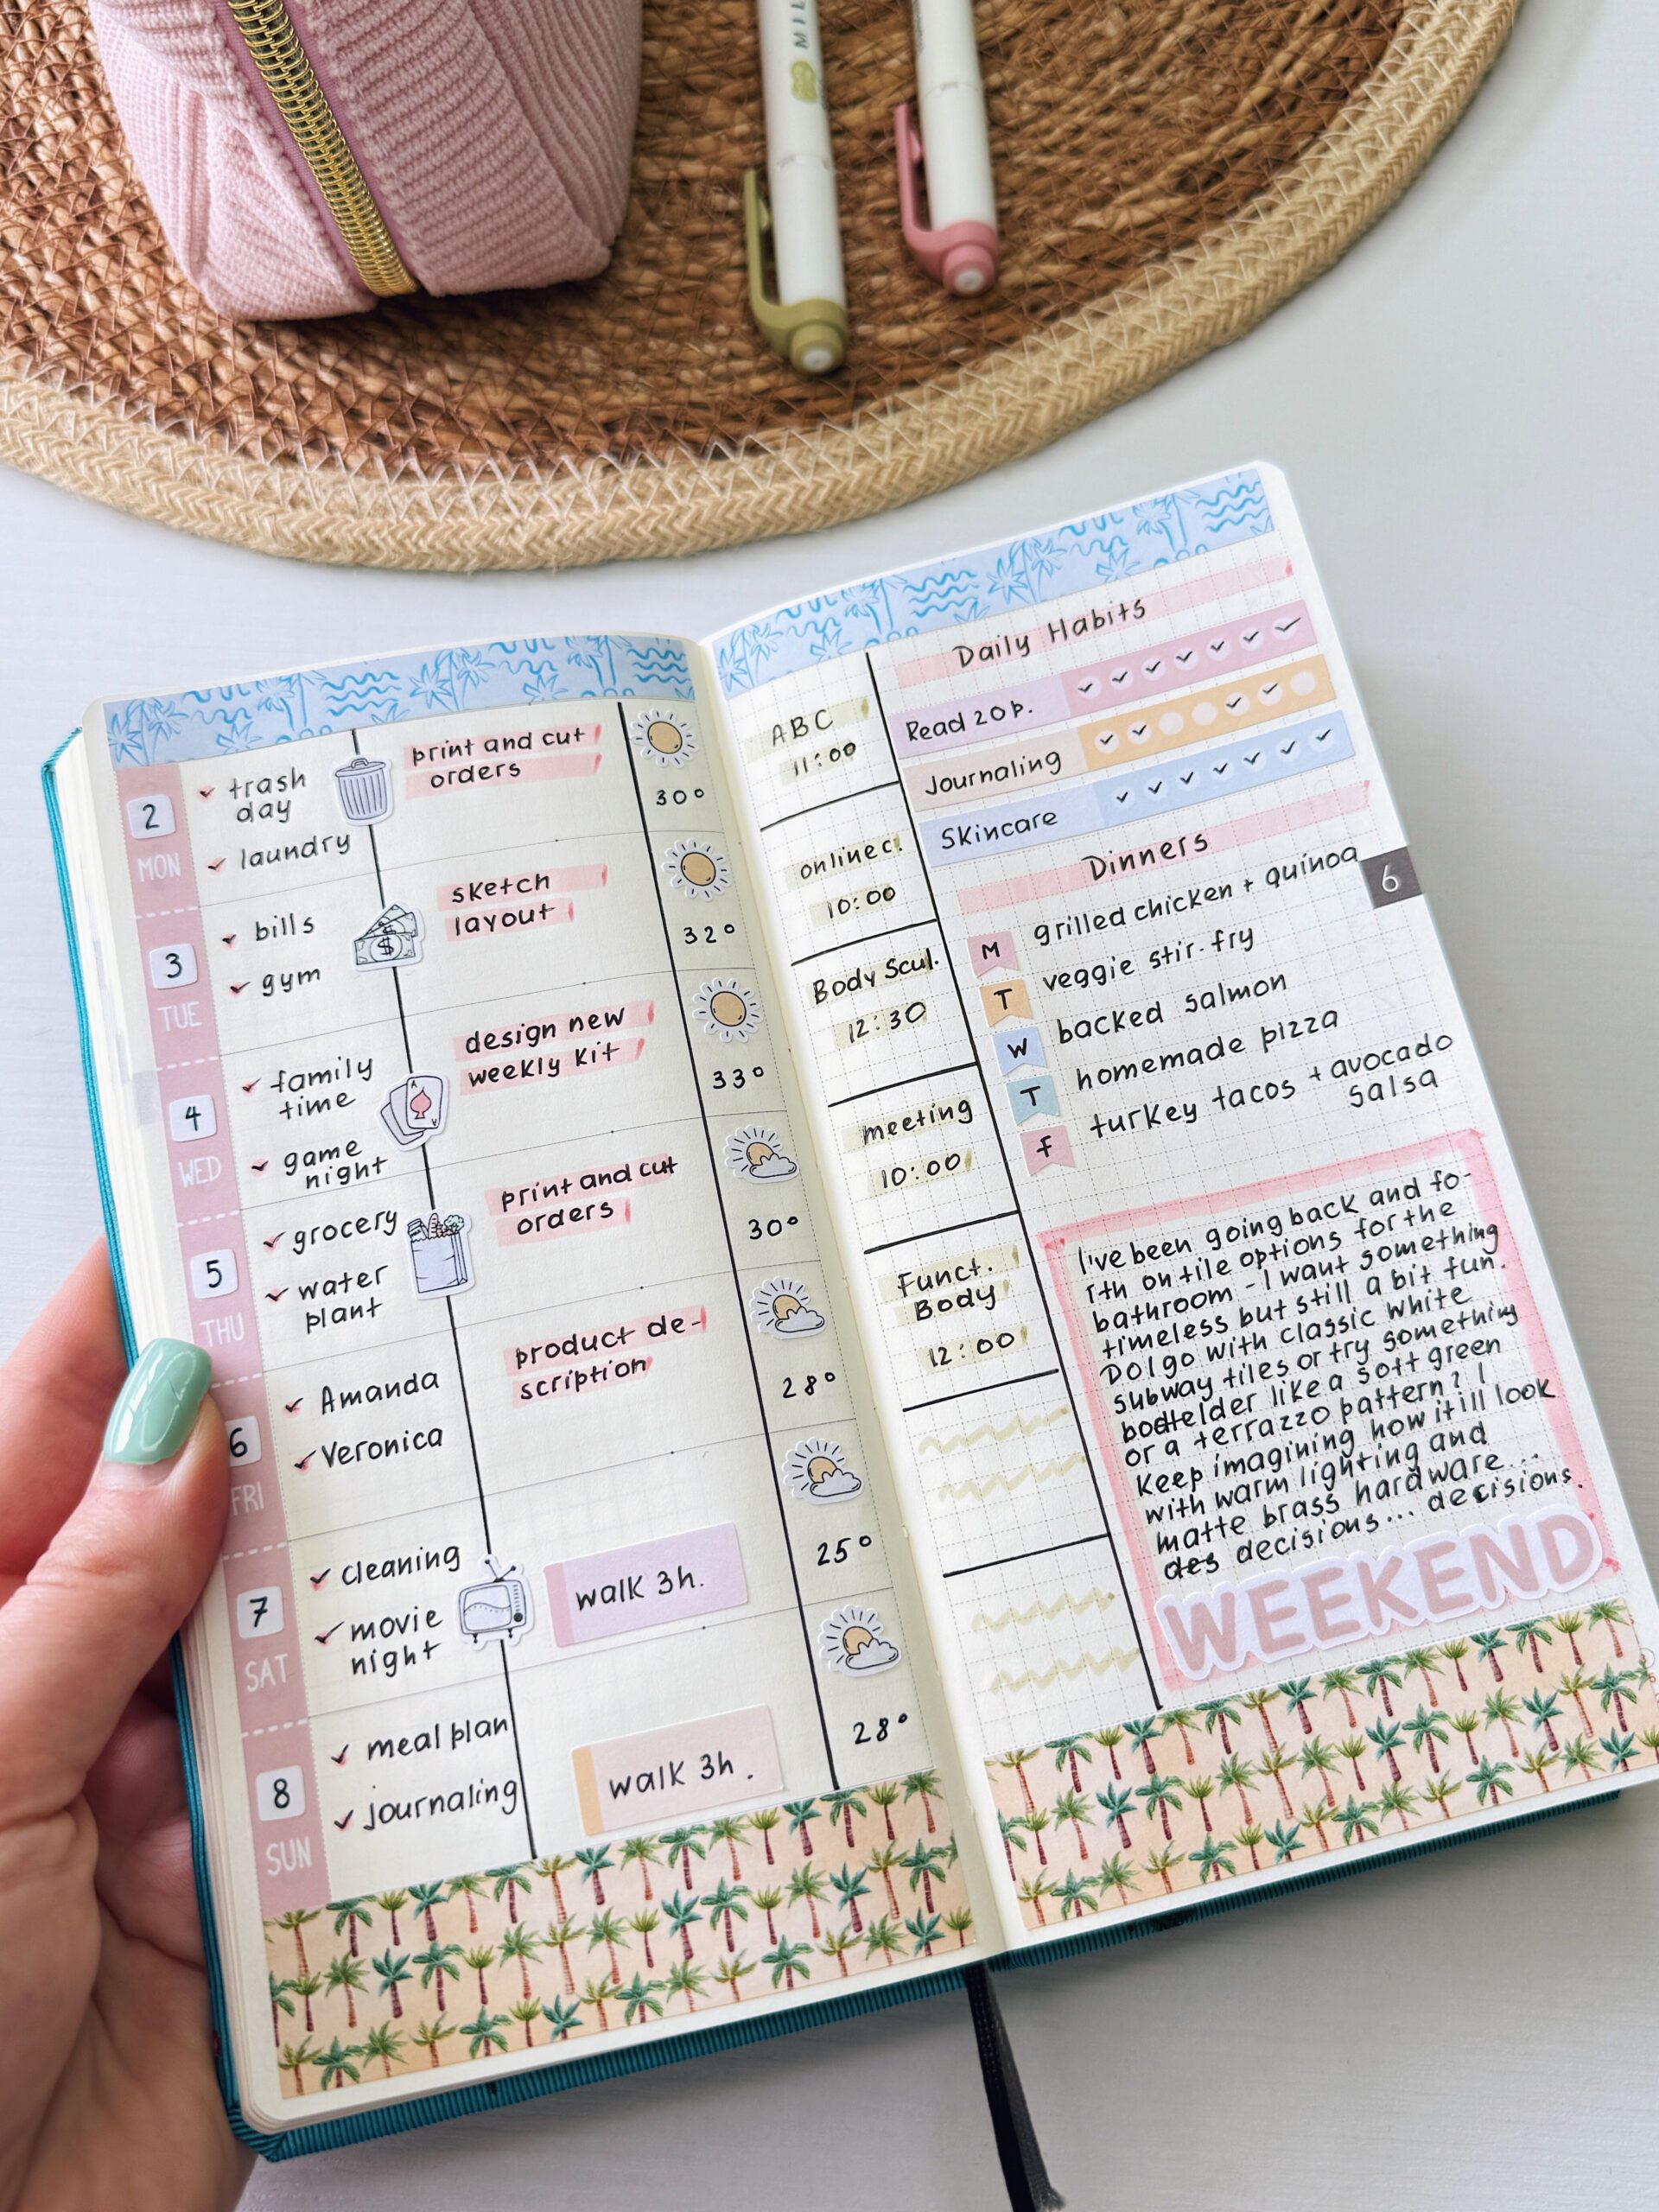 MIL
2
MON
trash
day
laundry
print and cut
orders
30°
3
TUE
bills
gym
$
$
sketch
layout
32°
4
WED
family
time
game
night
A
A
design new
weekly kit
33°
5
THU
grocery
water
plant
print and cut
orders
30°
6
FRI
Amanda
Veronica
product de-
scription
28°
7
SAT
cleaning
movie
night
walk 3h.
25°
8
SUN
meal plan
journaling
walk 3h.
28°
ABC
11:00
online c.
10:00
Body Scul.
12:30
meeting
10:00
Funct.
Body
12:00
Daily Habits
Read 20p.
Journaling
Skincare
Dinners
6
M grilled chicken + quinoa
T veggie stir-fry
W backed salmon
T homemade pizza
F turkey tacos + avocado
salsa
I've been going back and fo-
rth on tile options for the
bathroom - I want something
timeless but still a bit fun.
Do I go with classic white
subway tiles or try something
like a soft green
or a terrazzo pattern? I
Keep imagining how it ill look
with warm lighting and
matte brass hardware...
des decisions... decisions.
WEEKEND